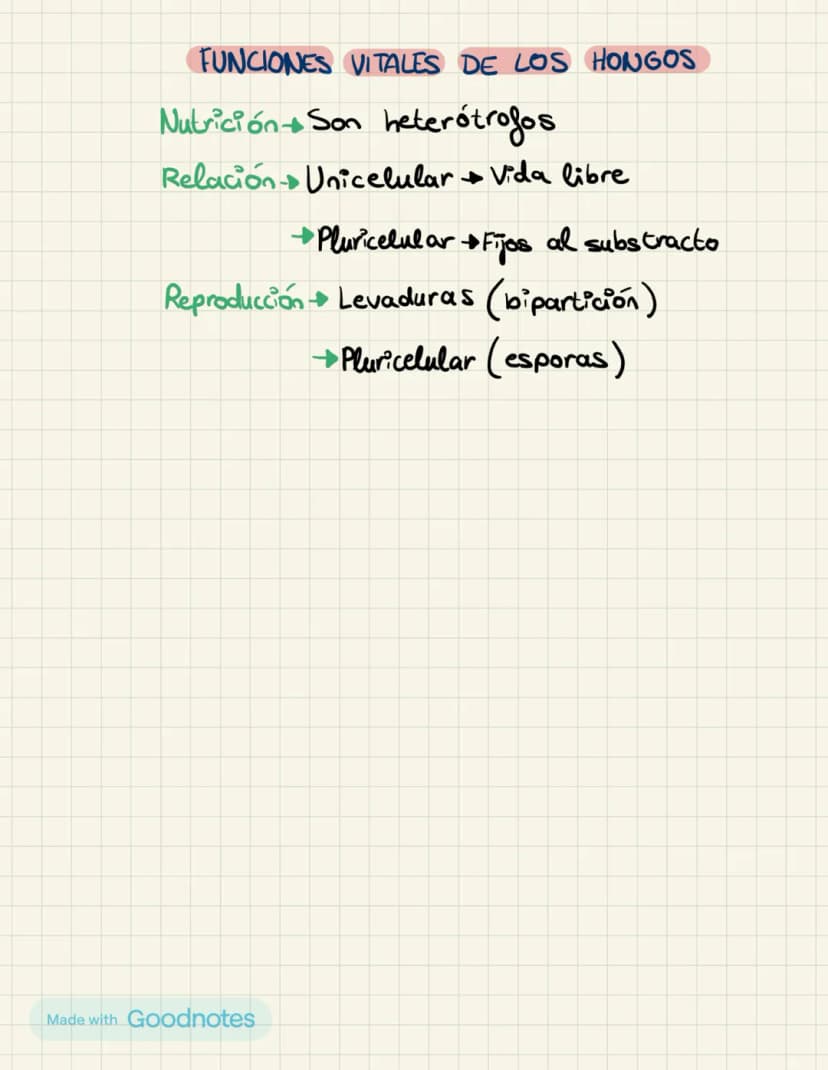 FUNCIONES VITALES DE LOS HONGOS
Nutrición → Son heterótrofos
Relación → Unicelular → Vida libre
→ Pluricelular → Fijos al substracto
Reproducción → Levaduras (bipartición)
→ Pluricelular (esporas)
Made with Goodnotes